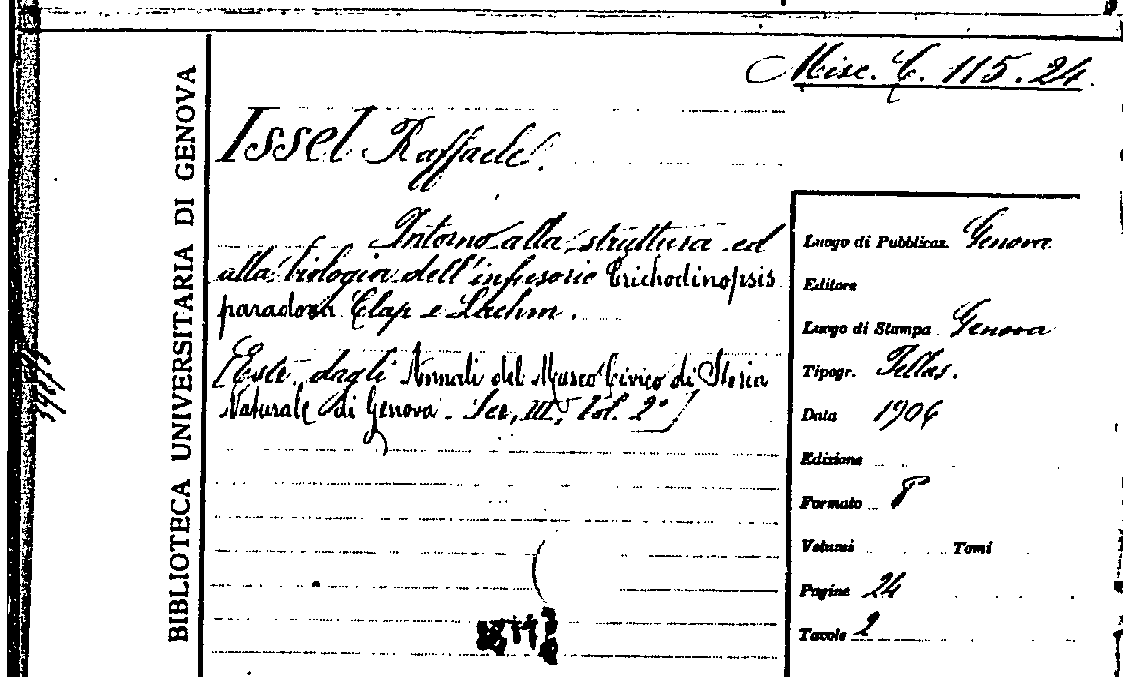 Misc. C. 115.24.
BIBLIOTECA UNIVERSITARIA DI GENOVA
Issel Raffaele.
Intorno alla struttura ed
alla biologia dell'infusorio Trichodinopsis
paradoxa Clap e Lachm.
[Estr. dagli Annali del Museo Civico di Storia
Naturale di Genova - Ser, III, Vol. 2°]
Luogo di Pubblicaz. Genova
Editore
Luogo di Stampa Genova
Tipogr. Pellas.
Data 1906
Edizione
Formato 8°
Volumi Tomi
Pagine 24
Tavole 2